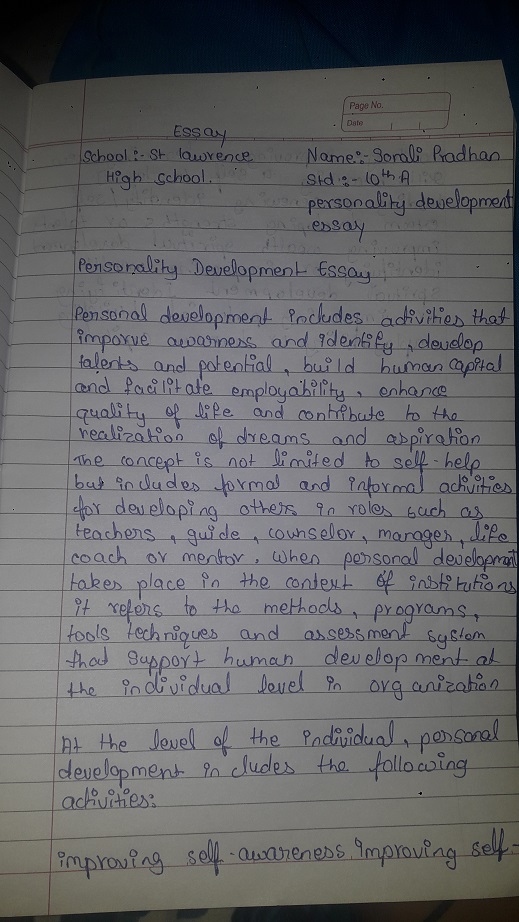 Page No.
Date
Essay
School:- St lawrence
High school.
Name:- Sorali Pradhan
Std :- 10th A
personality development
essay
Personality Development Essay
Personal development includes activities that
imporve awarness and identify, develop
talents and potential, build human capital
and facilitate employability, enhance
quality of life and contribute to the
realization of dreams and aspiration
The concept is not limited to self-help
but includes formal and informal activities
for developing others in roles such as
teachers, guide, counselor, manager, life
coach or mentor. When personal development
takes place in the context of institutions
it refers to the methods, programs,
tools techniques and assessment system
that support human development at
the individual level in organization
At the level of the individual, personal
development includes the following
activities:
improving self-awareness. Improving self-